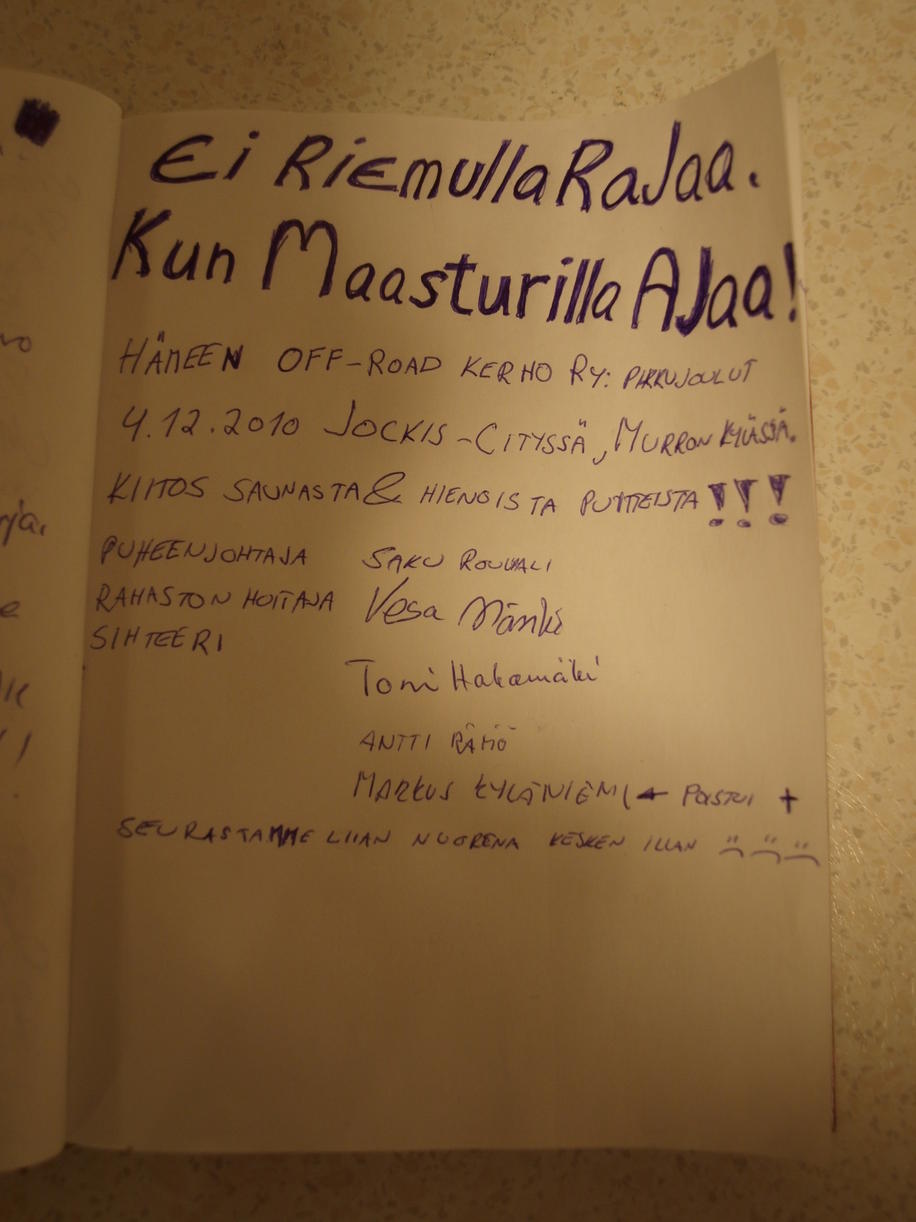 Ei RiEmulla RaJaa.
Kun Maasturilla AJaa!
HÄMEEN OFF-ROAD KERHO RY: PIKKUJOULUT
4.12.2010 JOCKIS-CITYSSÄ, MURRON KYLÄSSÄ.
KIITOS SAUNASTA & HIENOISTA PUITTEISTA!!!
PUHEENJOHTAJA SAKU
RAHASTON HOITAJA Vesa
SIHTEERI
Toni Hakamäki
ANTTI RÄMÖ
MARKUS KYLÄNIEMI ← POISTUI +
SEURASTAMME LIIAN NUORENA KESKEN ILLAN